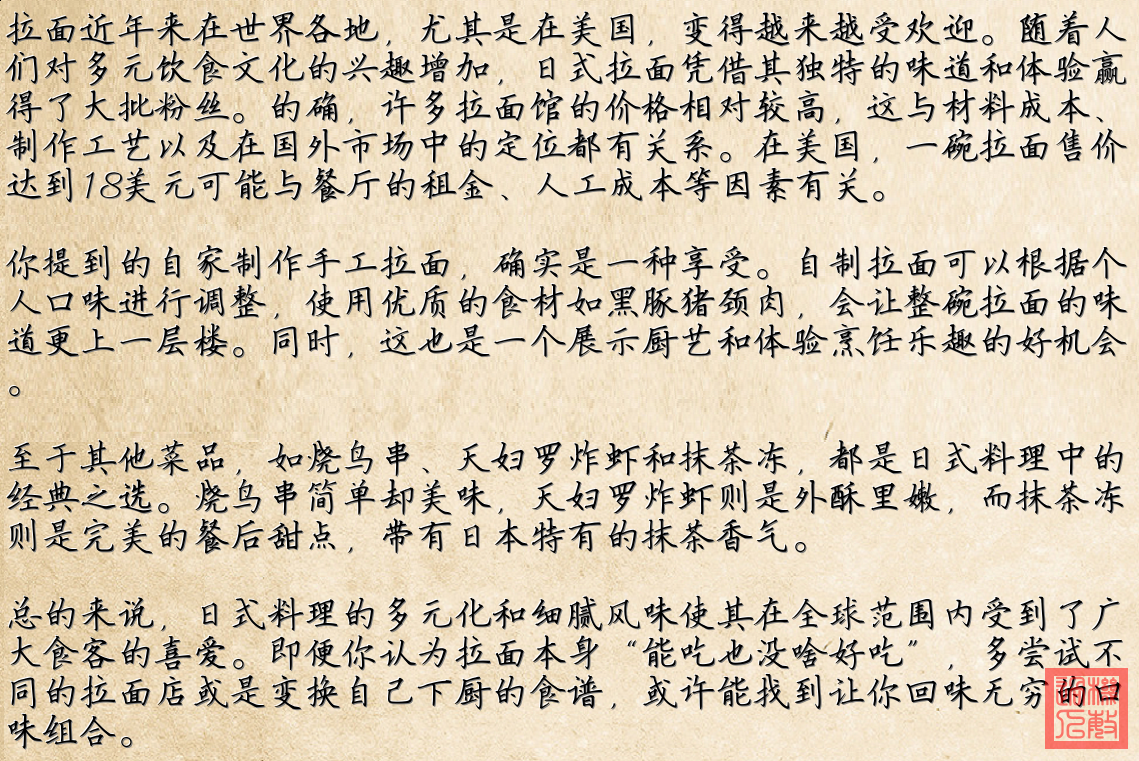 拉面近年来在世界各地，尤其是在美国，变得越来越受欢迎。随着人
们对多元饮食文化的兴趣增加，日式拉面凭借其独特的味道和体验赢
得了大批粉丝。的确，许多拉面馆的价格相对较高，这与材料成本、
制作工艺以及在国外市场中的定位都有关系。在美国，一碗拉面售价
达到18美元可能与餐厅的租金、人工成本等因素有关。
你提到的自家制作手工拉面，确实是一种享受。自制拉面可以根据个
人口味进行调整，使用优质的食材如黑豚猪颈肉，会让整碗拉面的味
道更上一层楼。同时，这也是一个展示厨艺和体验烹饪乐趣的好机会
。
至于其他菜品，如烧鸟串、天妇罗炸虾和抹茶冻，都是日式料理中的
经典之选。烧鸟串简单却美味，天妇罗炸虾则是外酥里嫩，而抹茶冻
则是完美的餐后甜点，带有日本特有的抹茶香气。
总的来说，日式料理的多元化和细腻风味使其在全球范围内受到了广
大食客的喜爱。即便你认为拉面本身“能吃也没啥好吃”，多尝试不
同的拉面店或是变换自己下厨的食谱，或许能找到让你回味无穷的口
味组合。